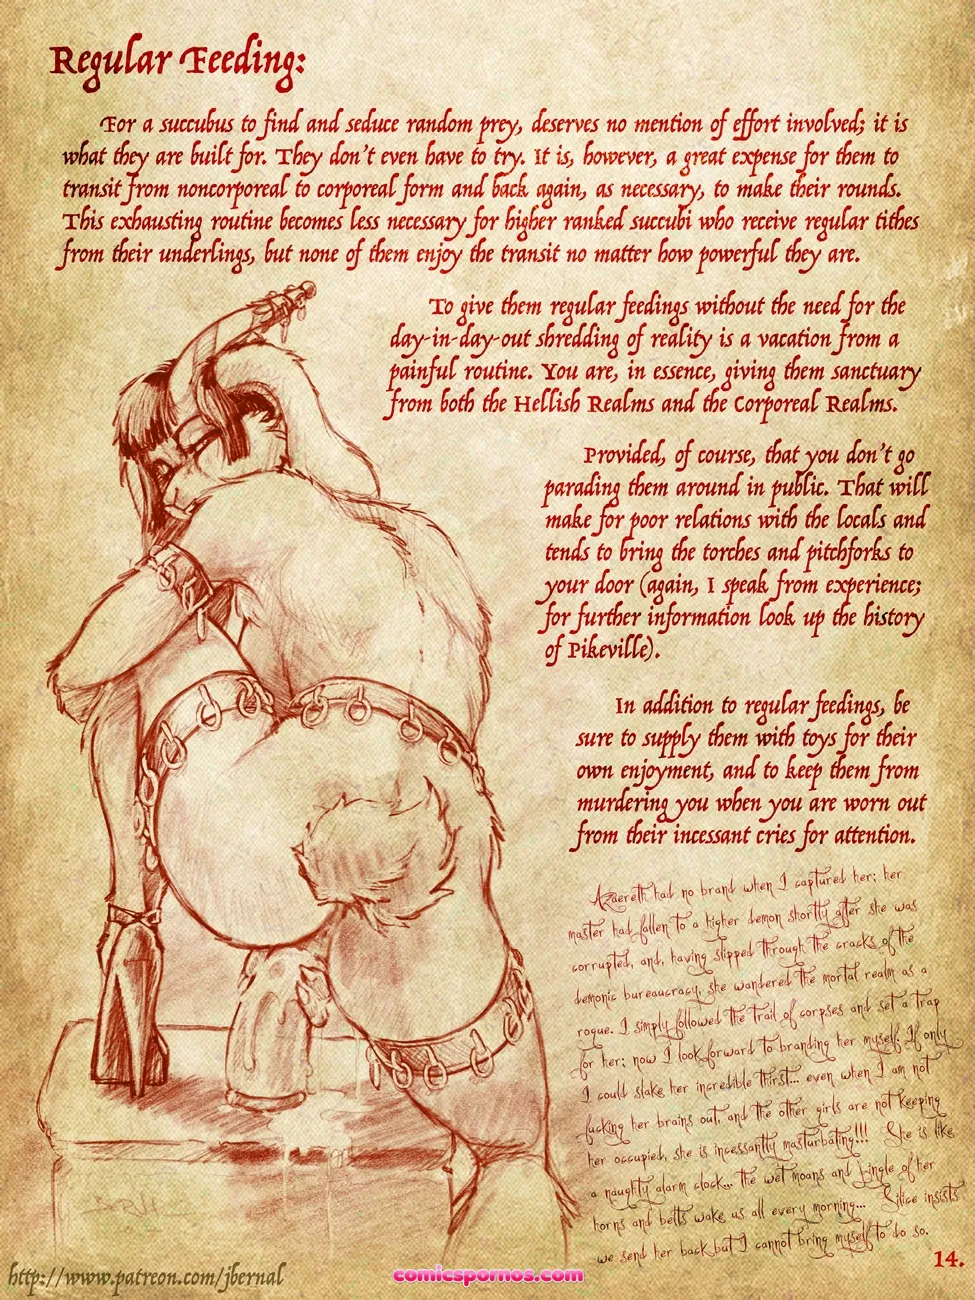 Regular Feeding:
For a succubus to find and seduce random prey, deserves no mention of effort involved; it is
what they are built for. They don't even have to try. It is, however, a great expense for them to
transit from noncorporeal to corporeal form and back again, as necessary, to make their rounds.
This exhausting routine becomes less necessary for higher ranked succubi who receive regular tithes
from their underlings, but none of them enjoy the transit no matter how powerful they are.
To give them regular feedings without the need for the
day-in-day-out shredding of reality is a vacation from a
painful routine. You are, in essence, giving them sanctuary
from both the Hellish Realms and the Corporeal Realms.
Provided, of course, that you don't go
parading them around in public. That will
make for poor relations with the locals and
tends to bring the torches and pitchforks to
your door (again, I speak from experience;
for further information look up the history
of Pikeville).
In addition to regular feedings, be
sure to supply them with toys for their
own enjoyment, and to keep them from
murdering you when you are worn out
from their incessant cries for attention.
Azaereth had no brand when I captured her; her
master had fallen to a higher demon shortly after she was
corrupted, and, having slipped through the cracks of the
demonic bureaucracy, she wandered the mortal realm as a
rogue. I simply followed the trail of corpses and set a trap
for her; now I look forward to branding her myself. If only
I could slake her incredible thirst... even when I am not
fucking her brains out, and the other girls are not keeping
her occupied, she is incessantly masturbating!!! She is like
a naughty alarm clock... the wet moans and jingle of her
horns and belts wake us all every morning... Silice insists
we send her back but I cannot bring myself to do so.
14.
http://www.patreon.com/jbernal
comicspornos.com